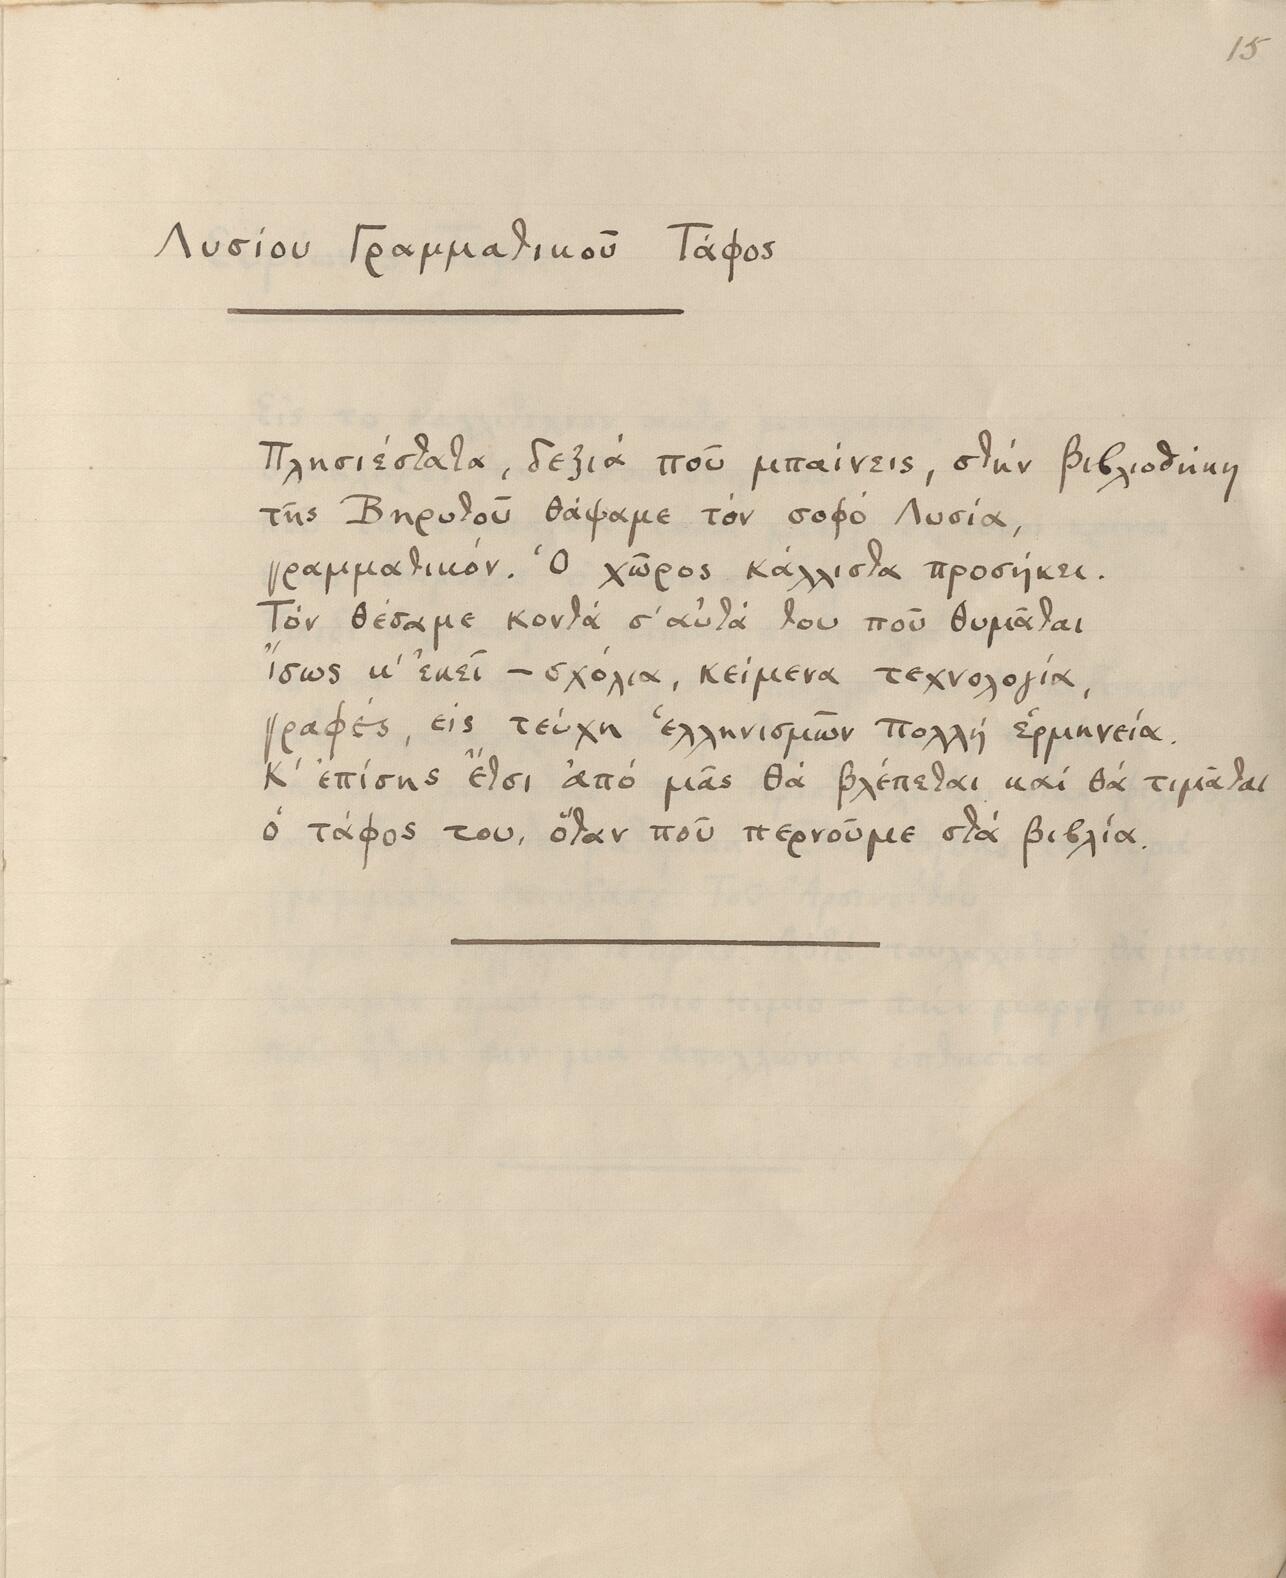 15
Λυσίου Γραμματικοῦ Τάφος
Πλησιέστατα, δεξιά ποῦ μπαίνεις, στήν βιβλιοθήκη
τῆς Βηρυτοῦ θάψαμε τόν σοφό Λυσία,
γραμματικόν. Ὁ χῶρος κάλλιστα προσήκει.
Τόν θέσαμε κοντά σ' αὐτά του ποῦ θυμᾶται
ἴσως κ' ἐκεῖ — σχόλια, κείμενα τεχνολογία,
γραφές, εἰς τεύχη ἑλληνισμῶν πολλή ἑρμηνεία.
Κ' ἐπίσης ἔτσι ἀπό μᾶς θά βλέπεται καί θά τιμᾶται
ὁ τάφος του, ὅταν ποῦ περνοῦμε στά βιβλία.